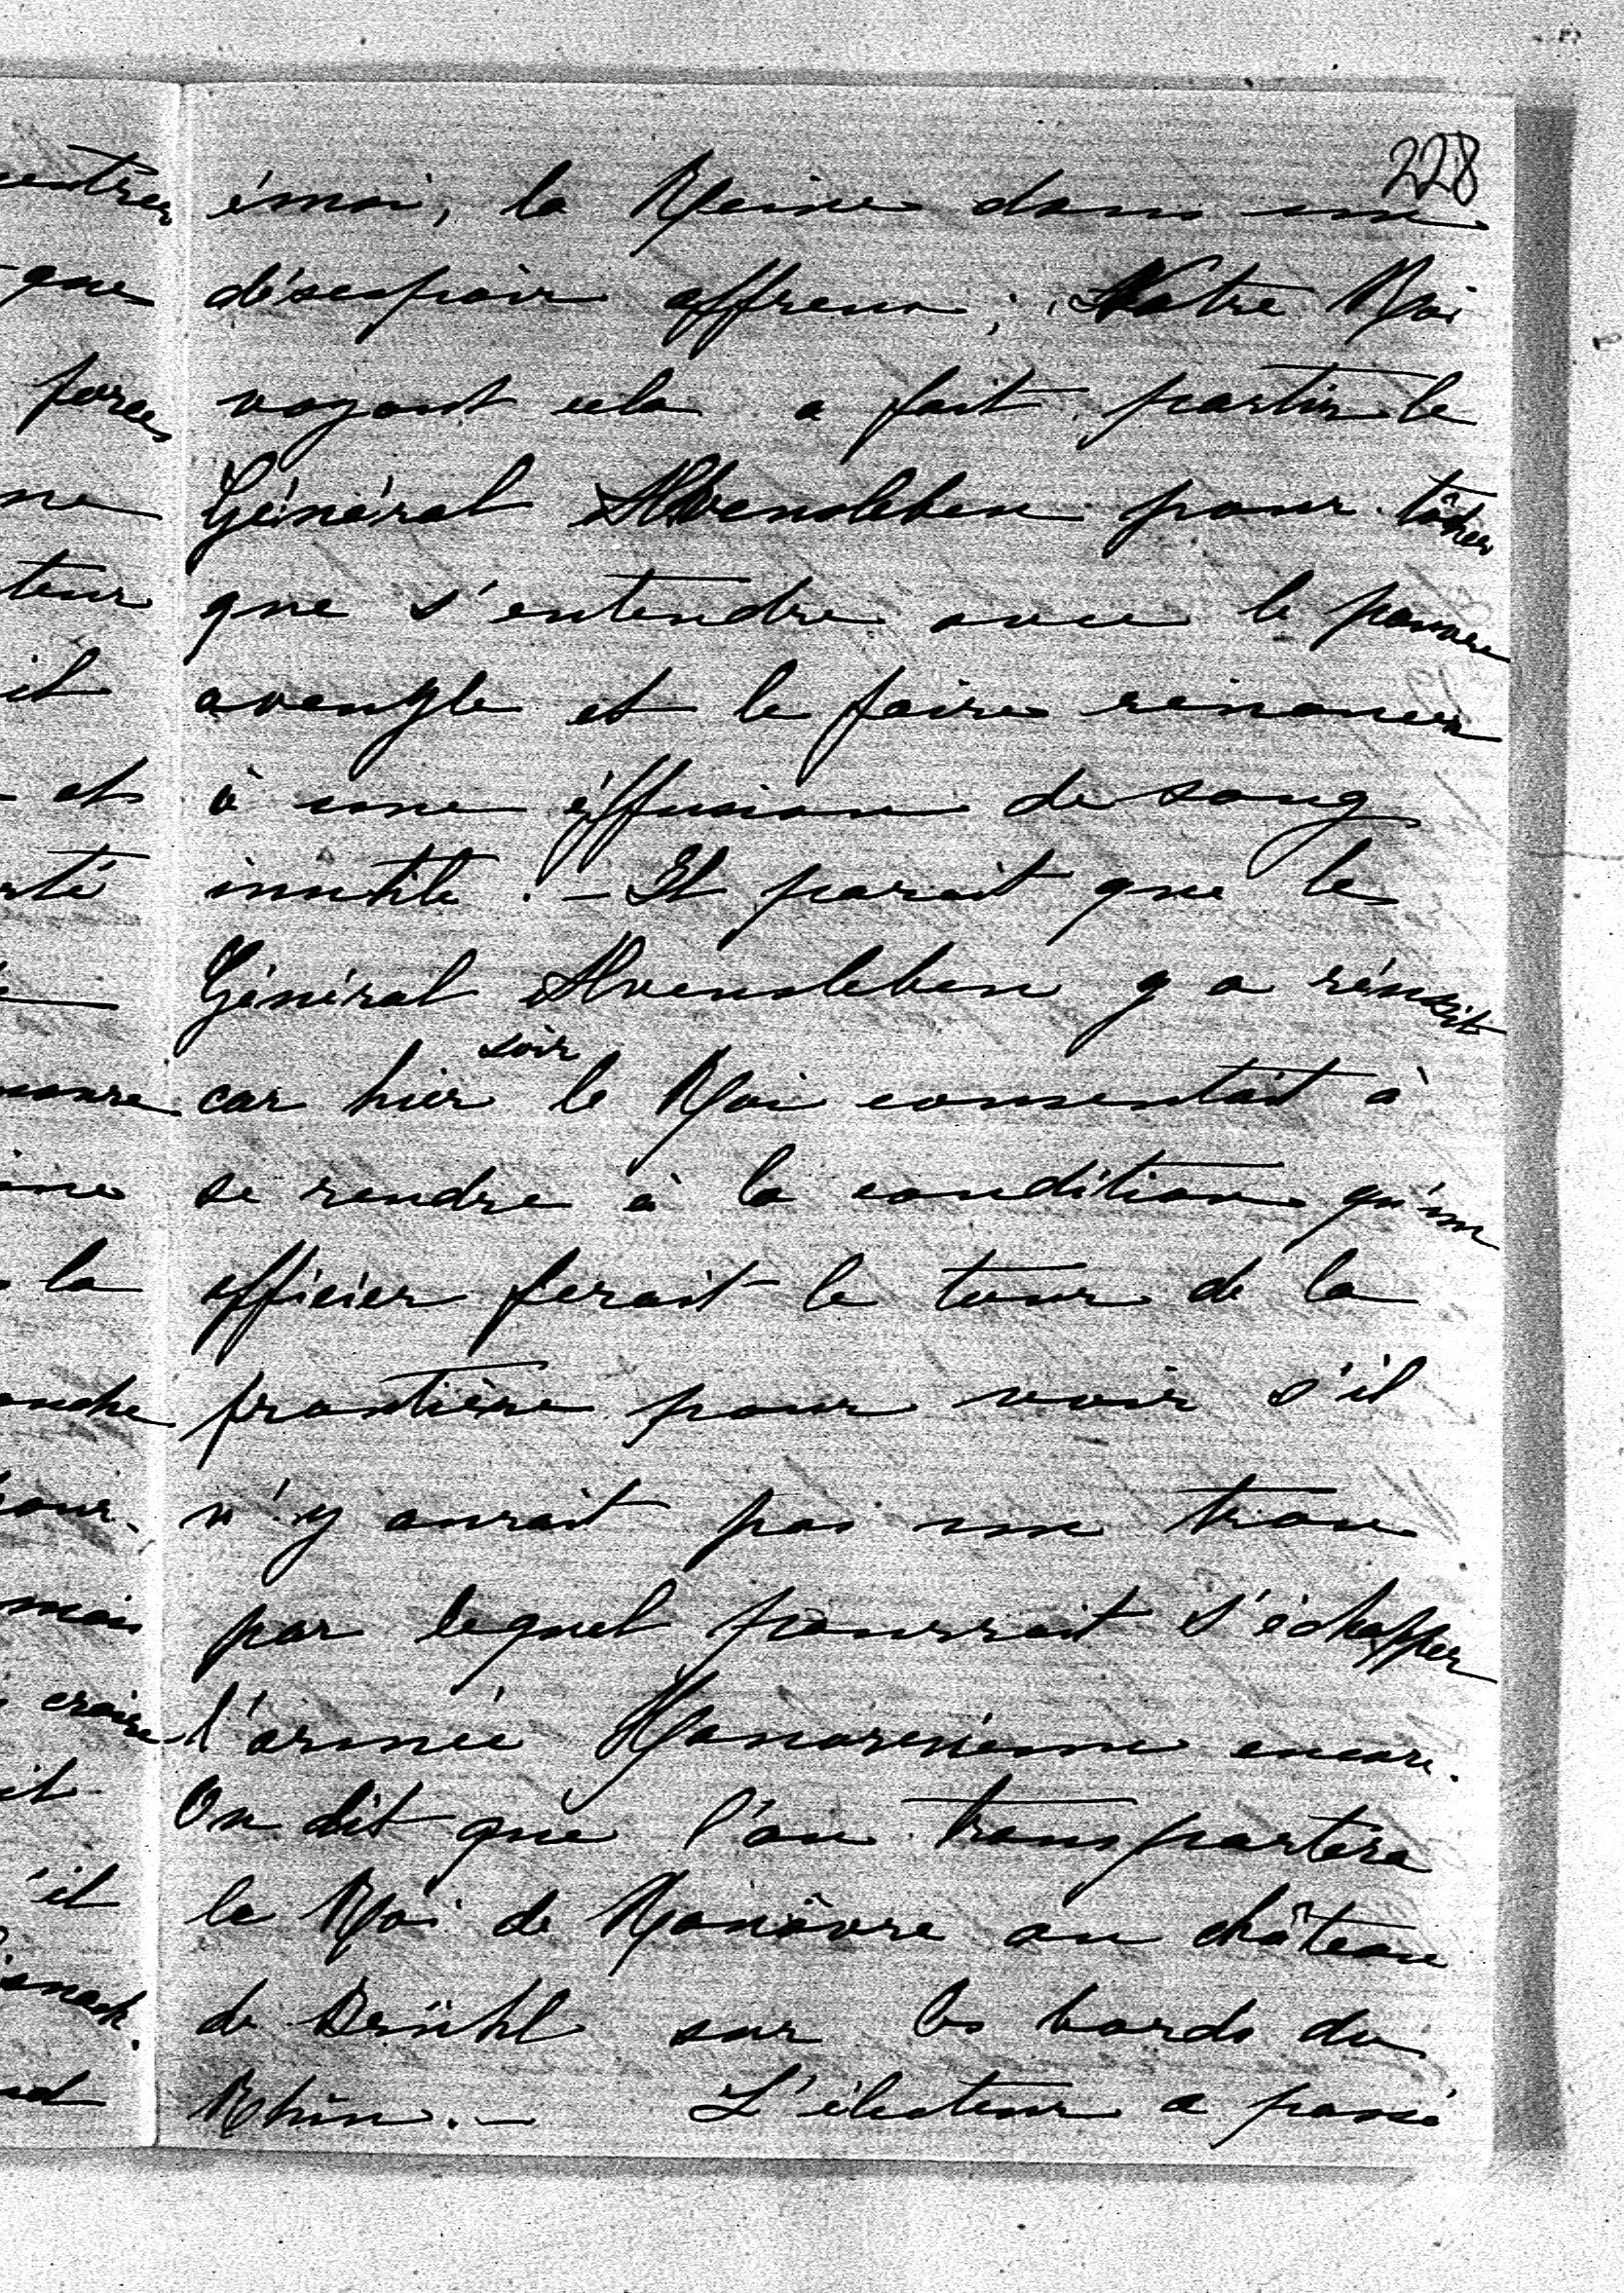 228
émoi, la Reine dans un
désespoir affreux; Notre Roi
voyant cela a fait partir le
Général Alvensleben pour tâcher
que s'entendre avec le pauvre
aveugle et le faire renoncer
à une éffusion de sang
inutile. – Il parait que le
Général Alvensleben y a réussit
car hier soir le Roi consentait à
se rendre à la condition qu'un
officier ferait le tour de la
frontière pour voir s'il
n'y aurait pas un trou
par lequel pourrait s'échapper
l'armée Hanovrienne encore.
On dit que l'on transportera
le Roi de Hanôvre au château
de Brühl sur les bords du
Rhin. – L'électeur a passé